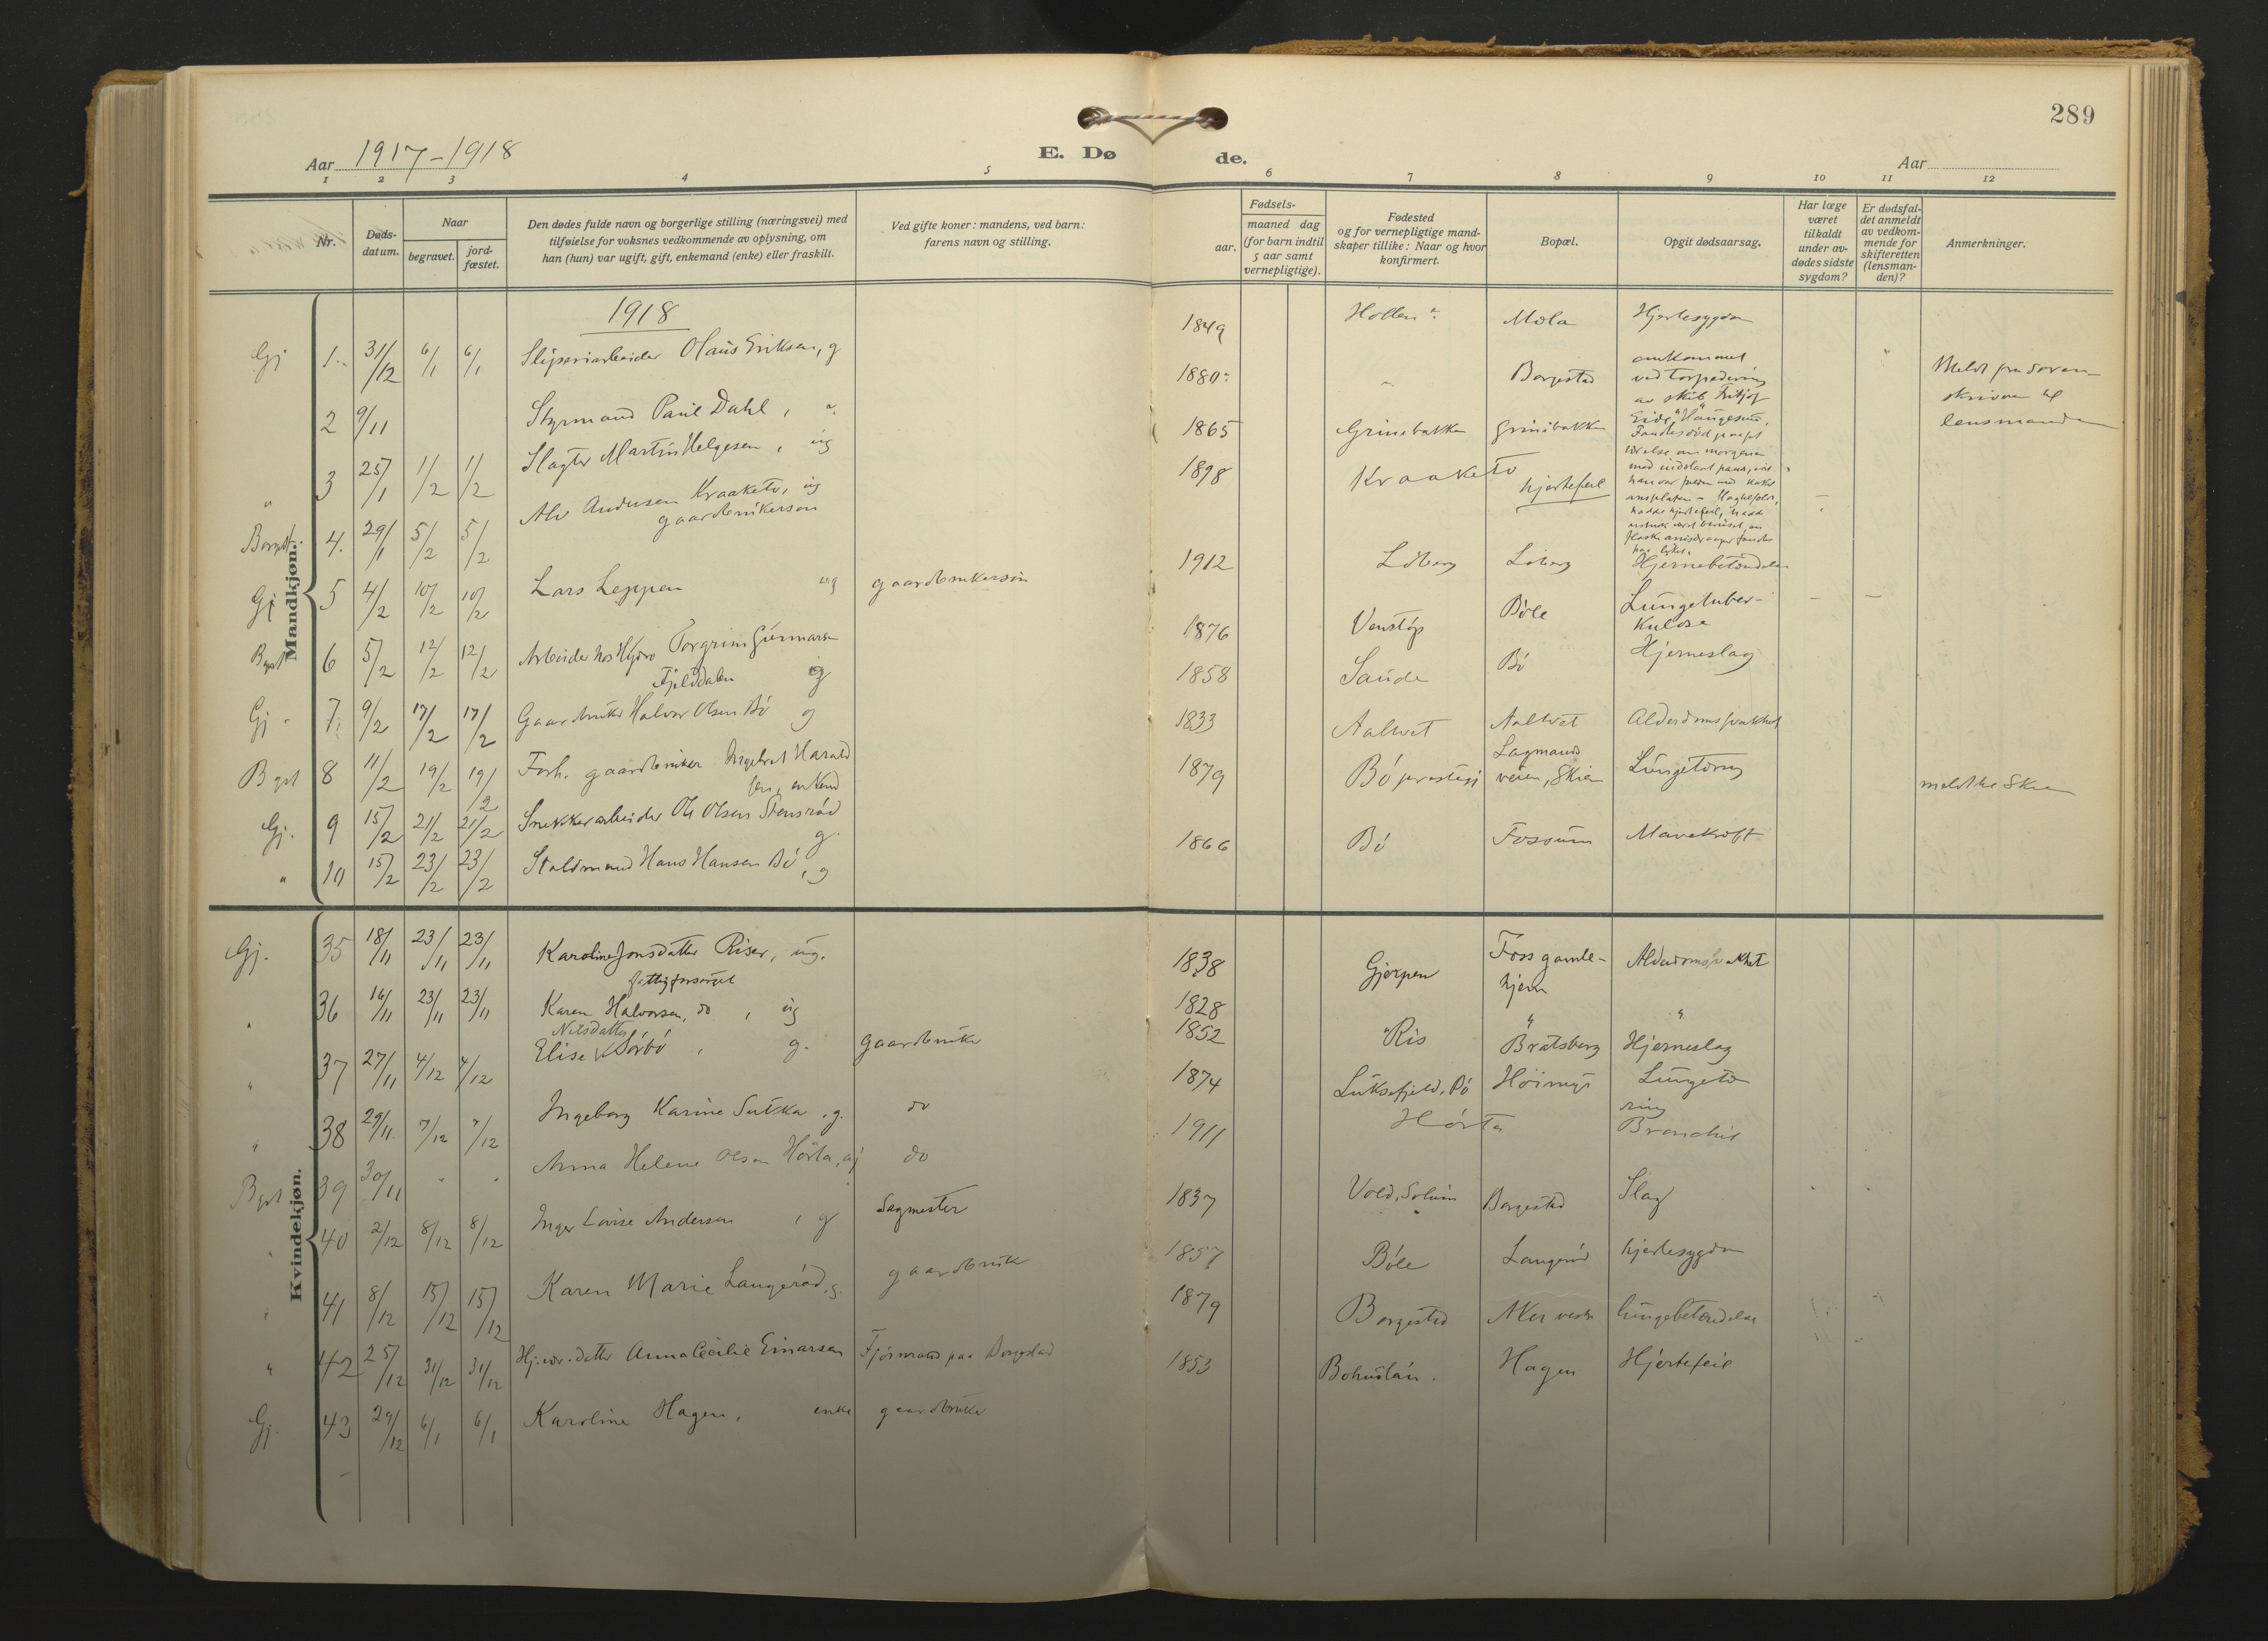 289
Aar 1917-1918
E. Dø de.
Aar
1 2 3 4 5 6 7 8 9 10 11 12
Nr.
Døds-
datum.
Naar
begravet.
jord-
fæstet.
Den dødes fulde navn og borgerlige stilling (næringsvei) med
tilføielse for voksnes vedkommende av oplysning, om
han (hun) var ugift, gift, enkemand (enke) eller fraskilt.
Ved gifte koner: mandens, ved barn:
farens navn og stilling.
Fødsels-
aar.
maaned dag
(for barn indtil
5 aar samt
vernepligtige).
Fødested
og for vernepligtige mand-
skaper tillike: Naar og hvor
konfirmert.
Bopæl.
Opgit dødsaarsag.
Har læge
været
tilkaldt
under av-
dødes sidste
sygdom?
Er dødsfal-
det anmeldt
av vedkom-
mende for
skifteretten
(lensman-
den)?
Anmerkninger.
Mandkjøn.
1918
Gj 1. 31/12 6/1 6/1 Sliperiarbeider Olaus Eriksen, g 1849 Hollen Mæla Hjertesygdom
2 9/11 Styrmand Paul Dahl, 1880 Borgestad
omkommet
ved torpedering
av skib Fritjof
Eide, Haugesund
Meldt fra Soren-
skriveren til
lensmanden
" 3 25/1 1/2 1/2 Slagter Martin Helgesen, ug 1865 Grinibakken Grinibakken
Borgest. 4. 29/1 5/2 5/2 Alv Andersen Kraaketo, ug 1898 Kraaketo hjertefeil
gaardbrukersøn
Gj 5 4/2 10/2 10/2 Lars Leppen ug gaardbrukersøn 1912 Löberg Löberg Hjernebetændelse
Bgst 6 5/2 12/2 12/2 Arbeider hos Hydro Torgrim Gunnarsen 1876 Venstøp Bøle Lungetuber-
kulose
Fjelddalen g
Gj 7. 9/2 17/2 17/2 Gaardbruker Halvor Olsen Bö g 1858 Saude Bö Hjerneslag
Bgst 8 11/2 19/2 19/2 Forh. gaardbruker Ingebret Harald
sen, enkem 1833 Aaltvet Aaltvet Alderdomssvakhet
Gj. 9 15/2 21/2 21/2 Snekkerarbeider Ole Olsen Stensrød
g. 1879 Bö prestegj
Lagmands
veien, Skien Lungetæring meldt til Skien
" 10 15/2 23/2 23/2 Staldmand Hans Hansen Bö, g 1866 Bö Fossum Mavekræft
Kvindekjøn.
Gj. 35 18/11 23/11 23/11 Karoline Jonsdatter Riser, ug. 1838 Gjerpen Foss gamle-
hjem Alderdomssvakhet
fattigforsørget
" 36 16/11 23/11 23/11 Karen Halvorsen, do, ug 1828 " " "
Nilsdatter
" 37 27/11 4/12 4/12 Elise Sörbö, g. gaardbruker 1852 Ris Bratsberg Hjerneslag
" 38 29/11 7/12 7/12 Ingeborg Karine Sutka, g. do 1874 Luksefjeld, Bö Höimyr Lungetæ
ring
Bgst 39 30/11 " " Anna Helene Olsen Hörta, ug do 1911 Hörta Bronchit
" 40 2/12 8/12 8/12 Inger Lovise Andersen, g Sagmester 1837 Vold, Solum Borgestad Slag
" 41 8/12 15/12 15/12 Karen Marie Langeröd, g. gaardbruker 1857 Böle Langeröd hjertesygdom
" 42 25/12 31/12 31/12 Hj.vær. datter Anna Cecilie Einarsen Fjösmand paa Borgestad 1879 Borgestad Aker vestre lungebetændelse
Gj. 43 29/12 6/1 6/1 Karoline Hagen, enke gaardbruker 1853 Bohuslän. Hagen Hjertefeil